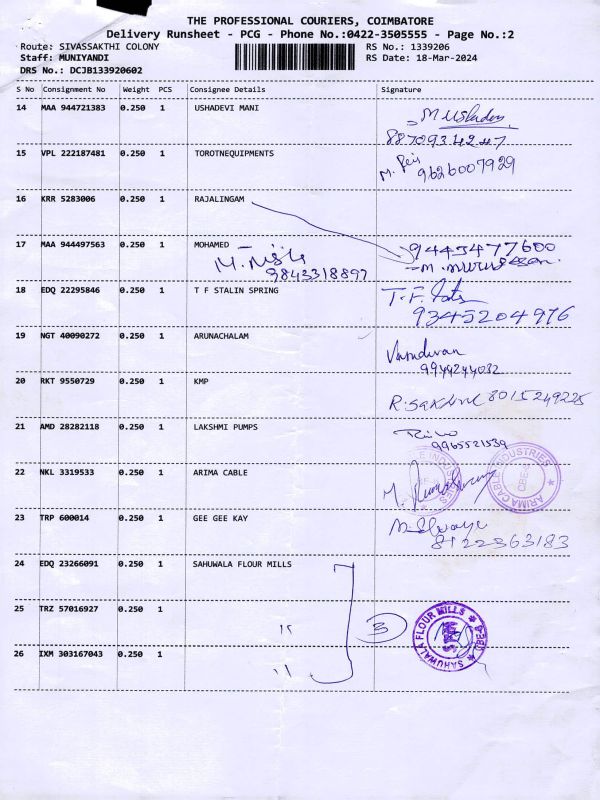 THE PROFESSIONAL COURIERS, COIMBATORE
Delivery Runsheet - PCG - Phone No.:0422-3505555 - Page No.:2
Route: SIVASSAKTHI COLONY
RS No.: 1339206
Staff: MUNIYANDI
RS Date: 18-Mar-2024
DRS No.: DCJB133920602
S No Consignment No Weight PCS Consignee Details Signature
14 MAA 944721383 0.250 1 USHADEVI MANI
M Ushadevi
8870934247
15 VPL 222187481 0.250 1 TOROTNEQUIPMENTS
9626007929
16 KRR 5283006 0.250 1 RAJALINGAM
17 MAA 944497563 0.250 1 MOHAMED
9443477600
9843318897
18 EDQ 22295846 0.250 1 T F STALIN SPRING
T. F.
9345204976
19 NGT 40090272 0.250 1 ARUNACHALAM
9944244032
20 RKT 9550729 0.250 1 KMP
8015249225
21 AMD 28282118 0.250 1 LAKSHMI PUMPS
9965521539
22 NKL 3319533 0.250 1 ARIMA CABLE
ARIMA CABLE INDUSTRIES
CBE-4
23 TRP 600014 0.250 1 GEE GEE KAY
8122363183
24 EDQ 23266091 0.250 1 SAHUWALA FLOUR MILLS
25 TRZ 57016927 0.250 1
"
3
SAHUWALA FLOUR MILLS
26 IXM 303167043 0.250 1
"